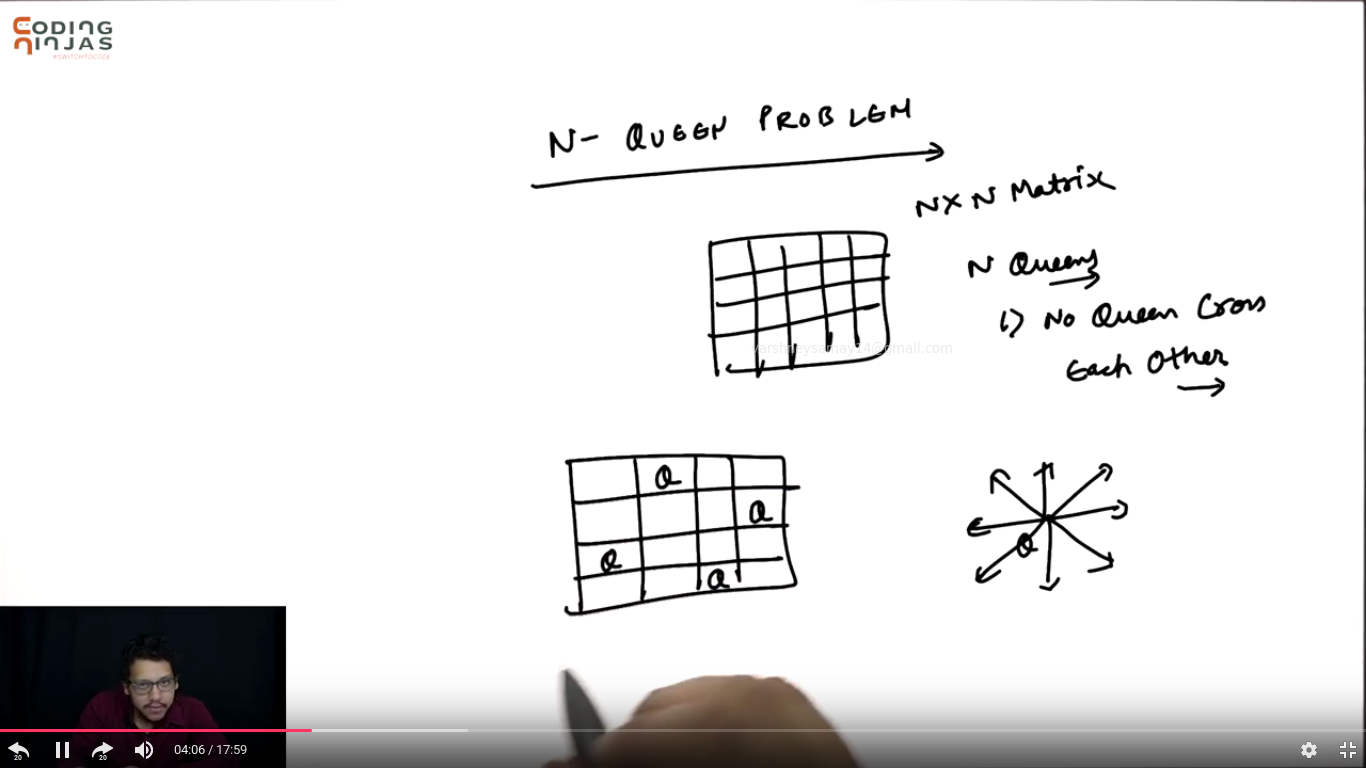 CODING
NINJAS
#SWITCHTOCODE
N- QUEEN PROBLEM
NXN Matrix
N Queens
1) No Queen Cross
Each Other
varshneysamay14@gmail.com
Q
Q
Q
Q
Q
20
20
04:06 / 17:59